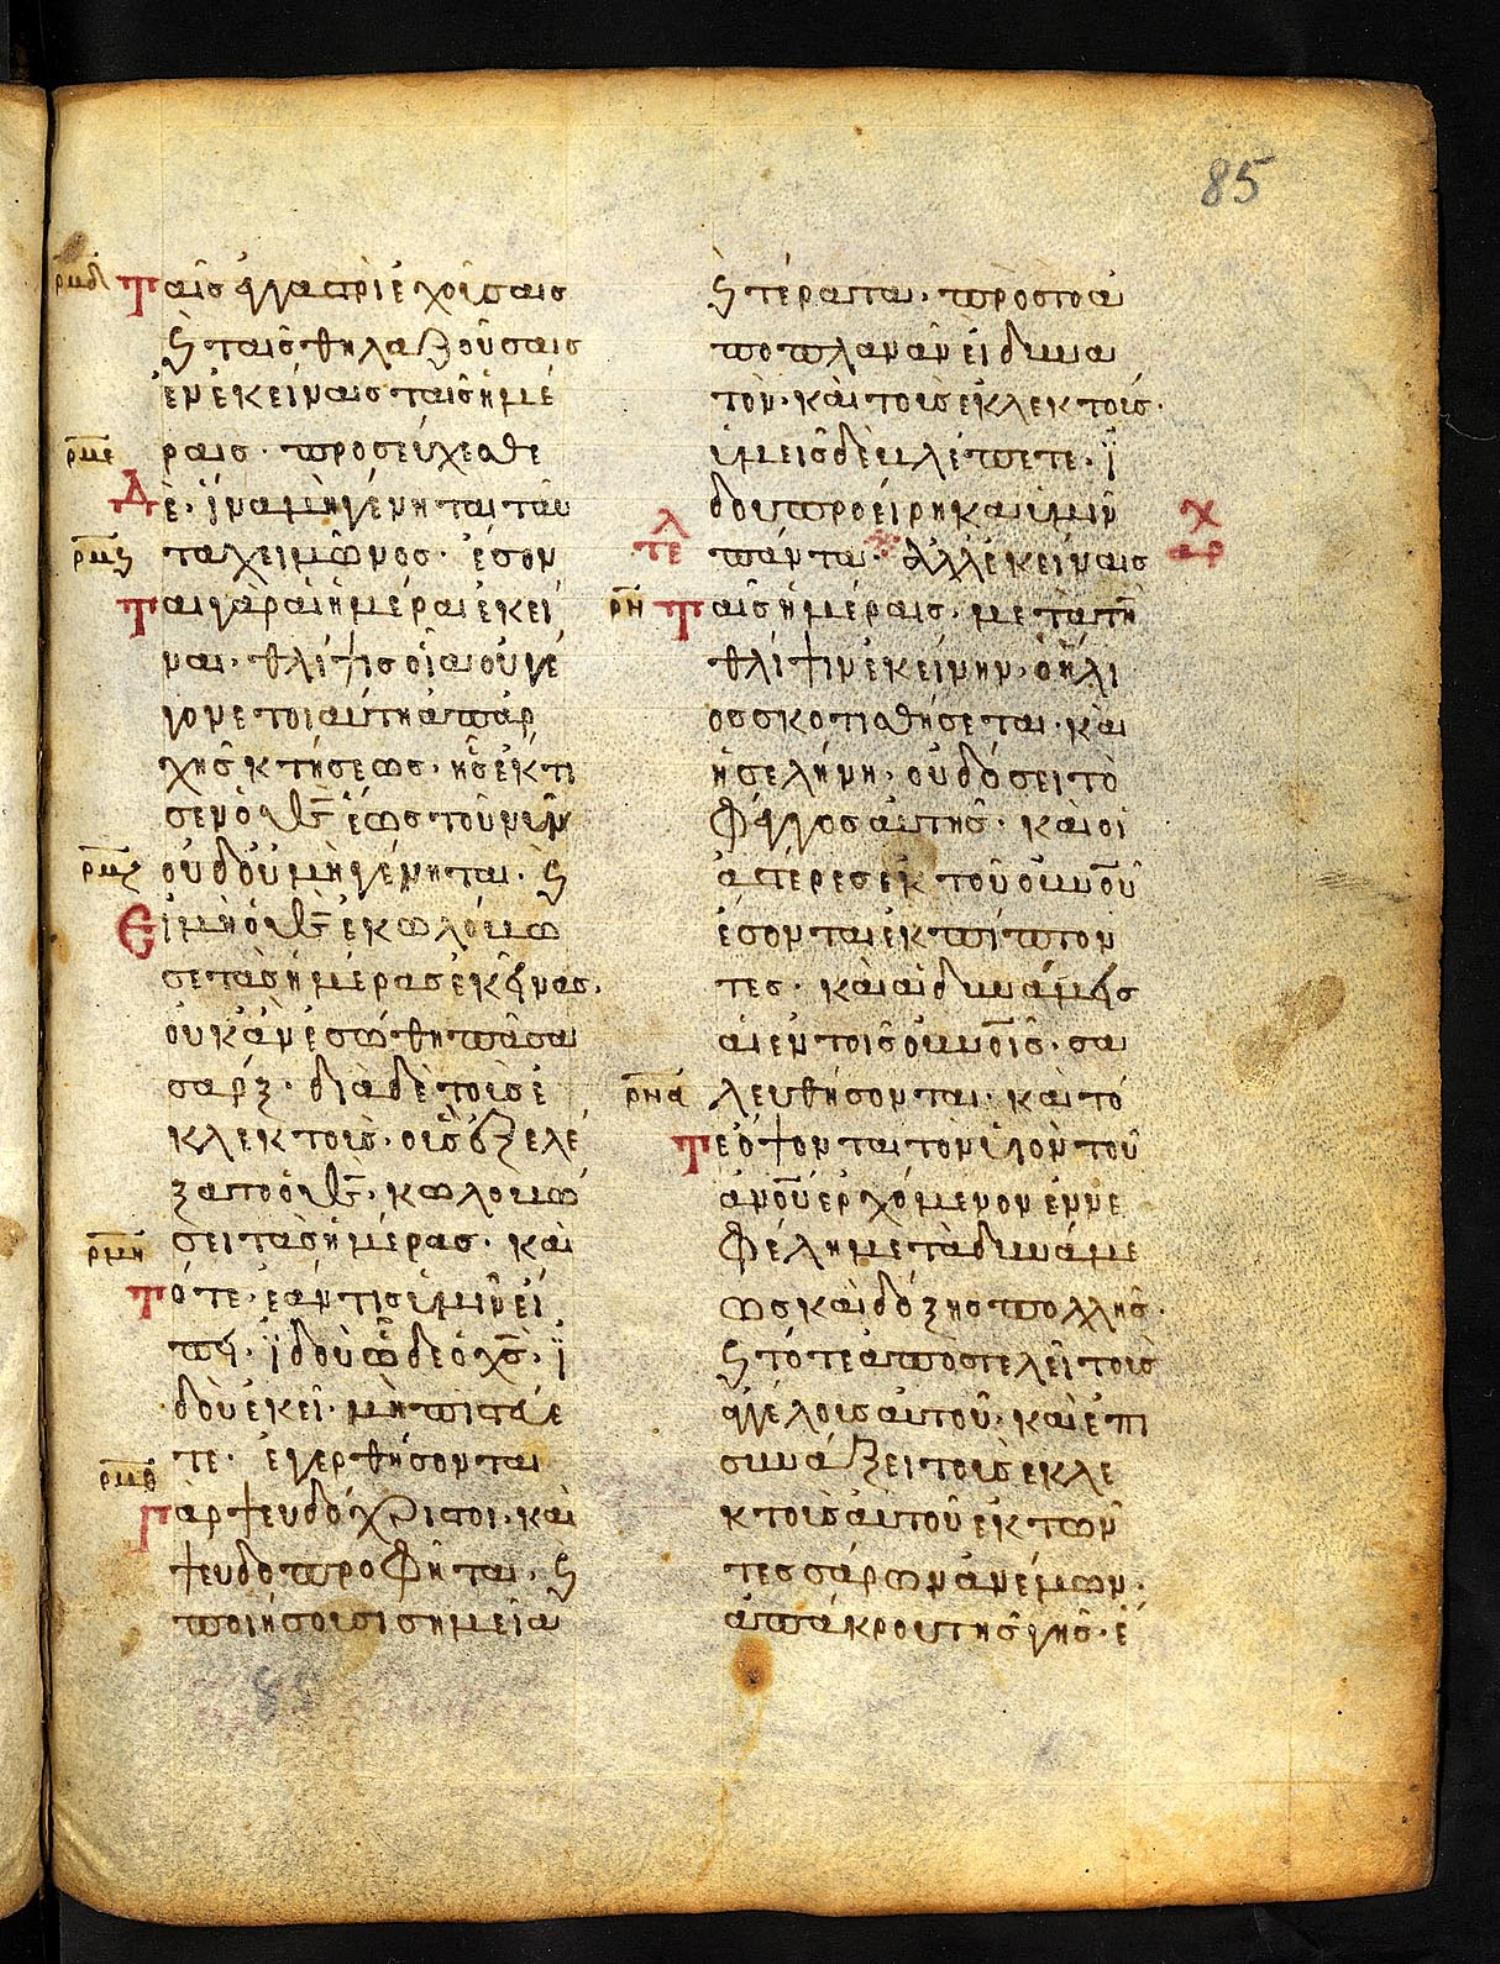 85
ρμδ Ταῖς ἐγγαστρὶ ἐχούσαις
ϗ ταῖς θηλαζούσαις
ἐν ἐκείναις ταῖς ἡμέ
ρμε ραις· προσεύχεσθε
Δὲ· ἵνα μὴ γένηται ταῦ
ρμϛ τα χειμῶνος· ἔσον
Ται γὰρ αἱ ἡμέραι ἐκεῖ
ναι· θλίψις οἵα οὐ γέ
γονε τοιαύτη ἀπ' ἀρ
χῆς κτήσεως· ἧς ἔκτι
σεν ὁ θς ἕως τοῦ νῦν
ρμζ οὐδ' οὐ μὴ γένηται· ϗ
Εἰ μὴ ὁ θς ἐκωλόβω
σε τὰς ἡμέρας ἐκείνας·
οὐκ ἂν ἐσώθη πᾶσα
σάρξ· διὰ δὲ τοὺς ἐ
κλεκτοὺς· οὓς ἐξελέ
ξατο ὁ θς· κωλοβώ
ρμη σει τὰς ἡμέρας· καὶ
Τότε· ἐάν τις ὑμῖν εἴ
πῃ· ἰδοὺ ὧδε ὁ χς· ἰ
δοὺ ἐκεῖ· μὴ πιστεύε
ρμθ τε· ἐγερθήσονται
Γὰρ ψευδόχριστοι· καὶ
ψευδοπροφῆται· ϗ
ποιήσουσι σημεῖα
ϗ τέρατα· πρὸς τὸ ἀ
ποπλανᾶν εἰ δυνα
τὸν· καὶ τοὺς ἐκλεκτούς·
ὑμεῖς δὲ βλέπετε· ἰ
δοὺ προείρηκα ὑμῖν
τελ πάντα· ἀλλ' ἐκείναις αρχ
ρν Ταῖς ἡμέραις· μετὰ τὴν
θλίψιν ἐκείνην· ὁ ἥλι
ος σκοτισθήσεται· καὶ
ἡ σελήνη· οὐ δώσει τὸ
φέγγος αὐτῆς· καὶ οἱ
ἀστέρες ἐκ τοῦ οὐνοῦ
ἔσονται ἐκπίπτον
τες· καὶ αἱ δυνάμεις
αἱ ἐν τοῖς οὐνοῖς· σα
ρνα λευθήσονται· καὶ τό
Τε ὄψονται τὸν υἱὸν τοῦ
ἀνοῦ ἐρχόμενον ἐν νε
φέλῃ μετὰ δυνάμε
ως καὶ δόξης πολλῆς·
ϗ τότε ἀποστελεῖ τοὺς
ἀγγέλους αὐτοῦ· καὶ ἐπι
συνάξει τοὺς ἐκλε
κτοὺς αὐτοῦ ἐκ τῶν
τεσσάρων ἀνέμων·
ἀπ' ἄκρου τῆς γῆς· ἕ